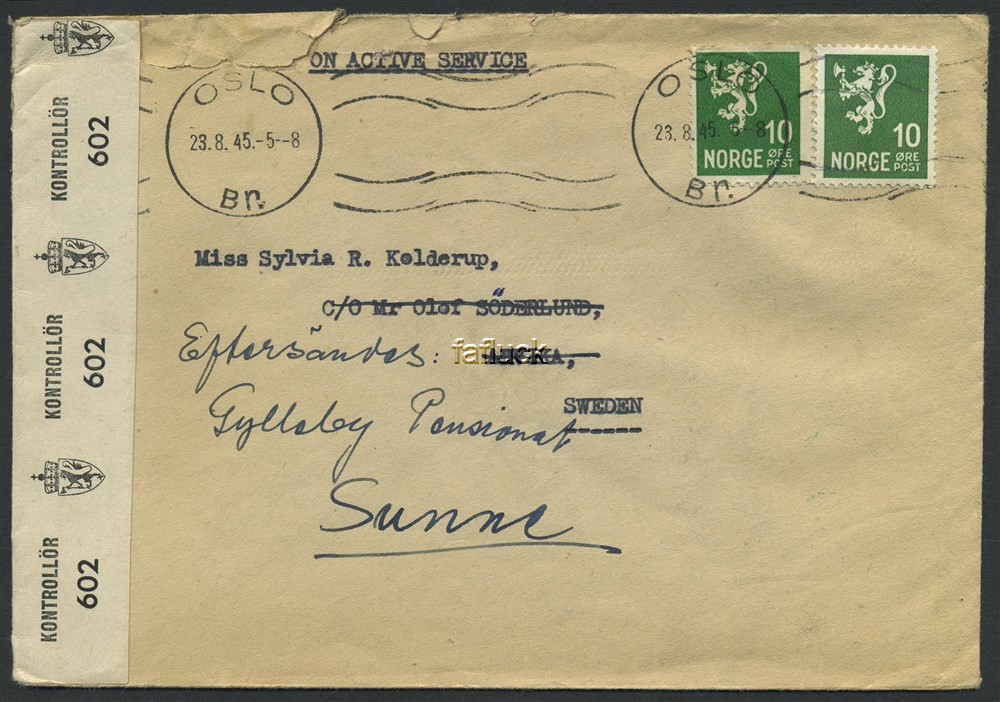 ON ACTIVE SERVICE
OSLO
23.8.45.-5--8
Br.
OSLO
23.8.45. 5-8
Br.
10
NORGE ØRE
POST
10
NORGE ØRE
POST
Miss Sylvia R. Kolderup,
C/O Mr Olof SÖDERLUND,
Eftersändes:
fafluck
SWEDEN
Gyllsby Pensionat
Sunne
KONTROLLÖR
602
KONTROLLÖR
602
KONTROLLÖR
602